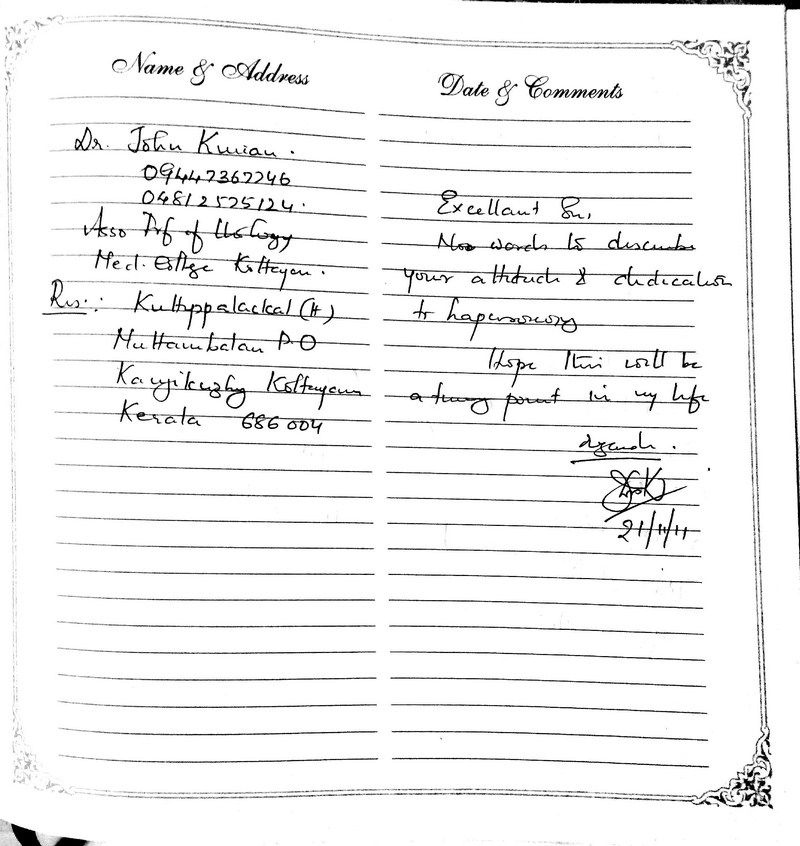 Name & Address
Dr. John Kurian.
09447367246
04812525124.
Asso Prf of Urology
Med. College Kottayam.
Res:
(H)
Muttambalam P.O
Kanjikuzhy Kottayam
Kerala 686 004
Date & Comments
Excellant Sir,
No words to describe
your attitude & dedication
to laparoscopy
Hope this will be
a turning point in my life
21/11/11